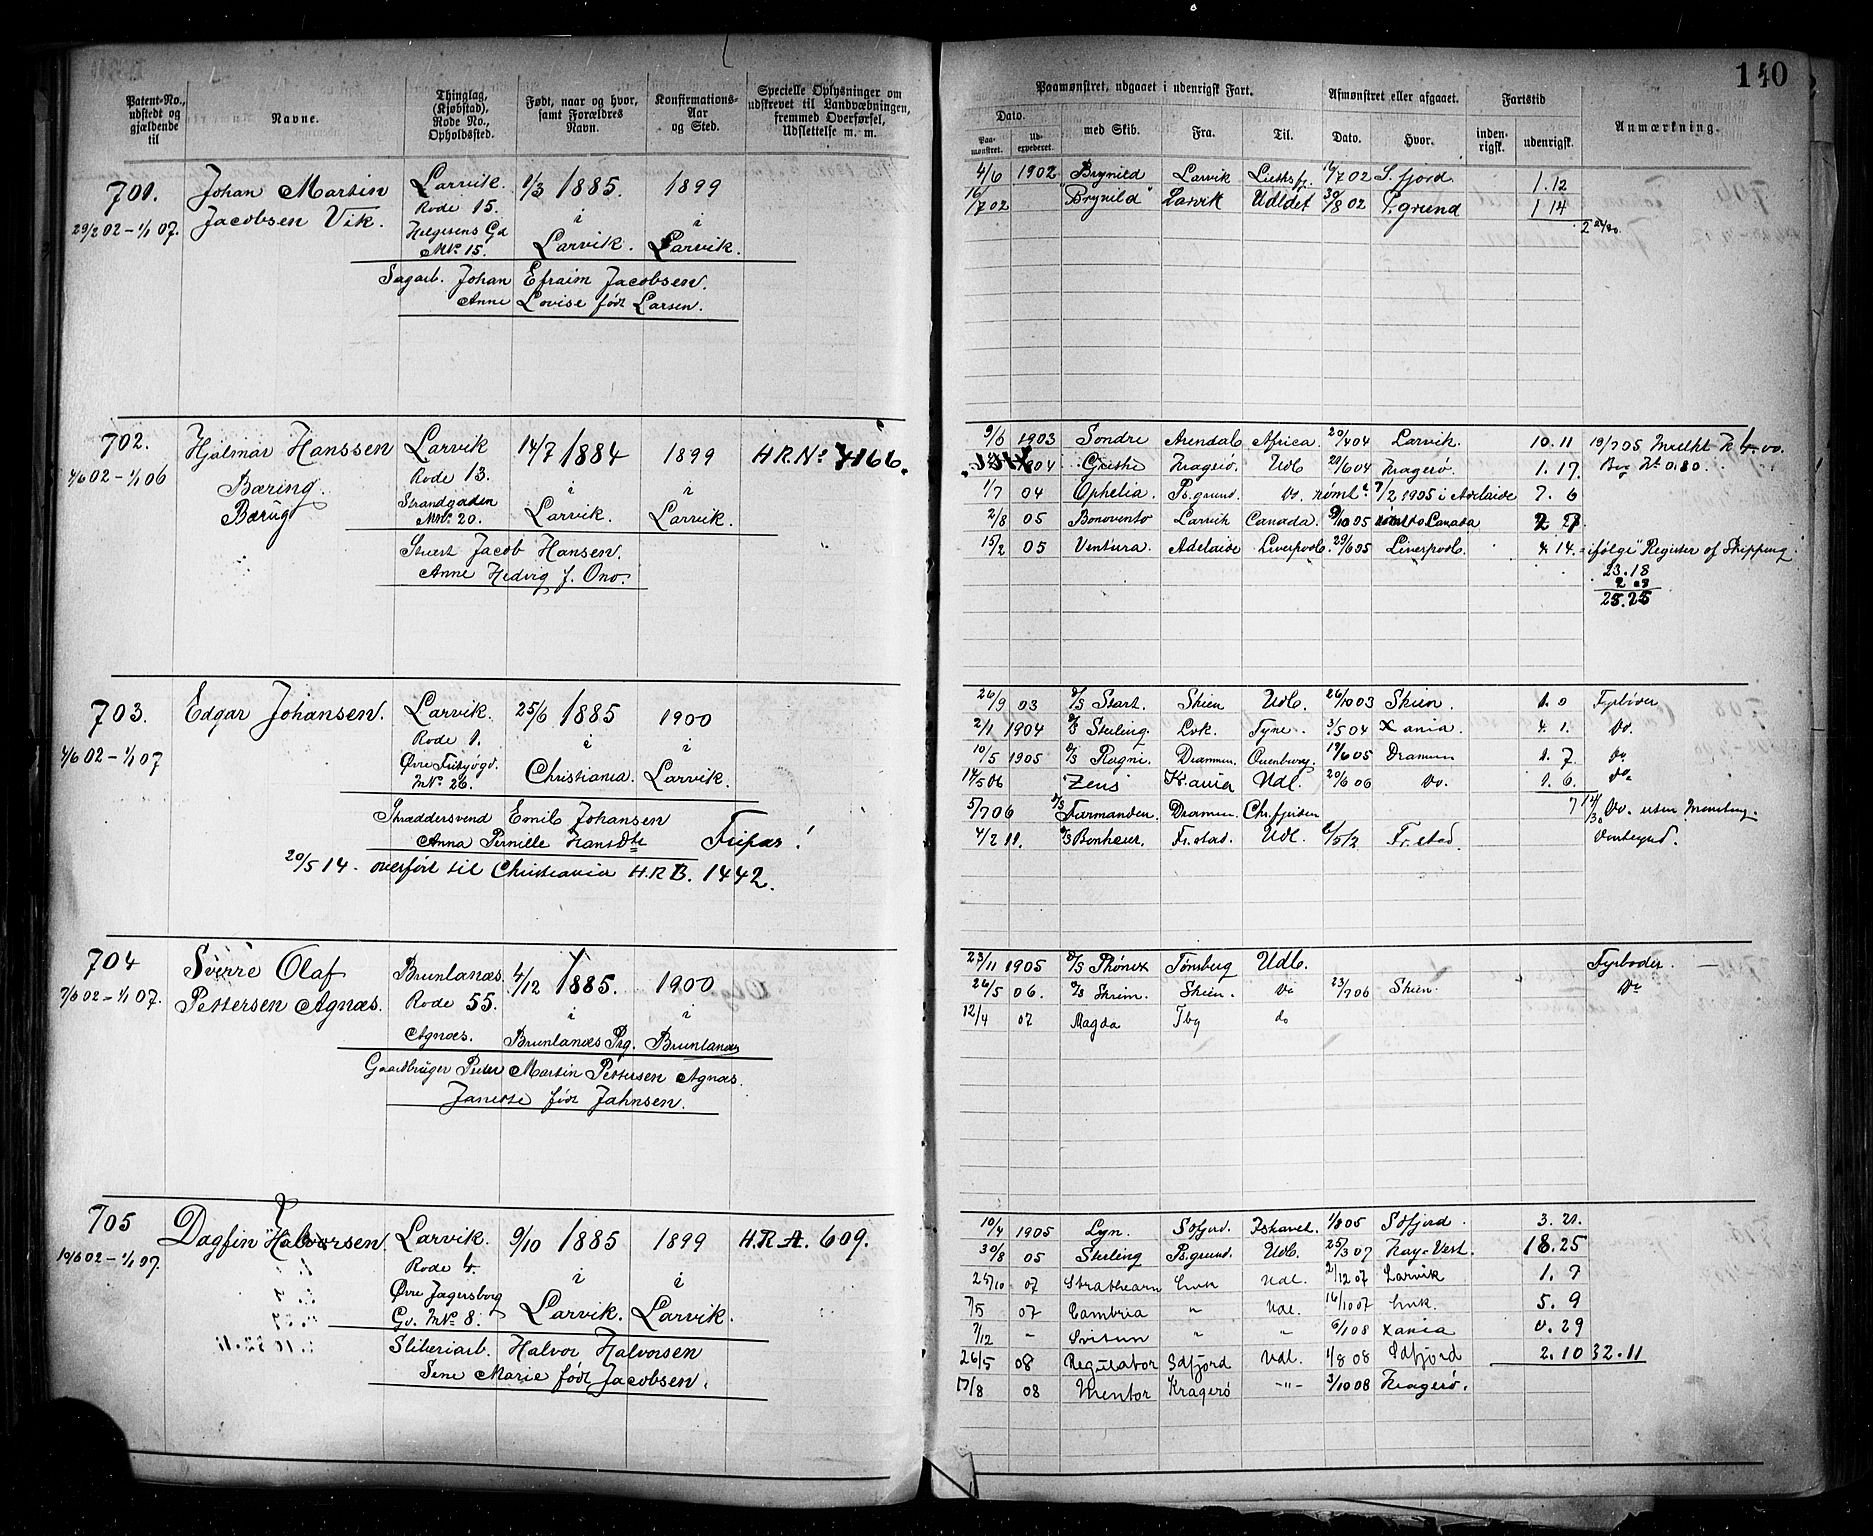 140
Patent-No., udstedt og gjældende til
Navne.
Thinglag, (Kjøbstad), Rode No., Opholdssted.
Født, naar og hvor, samt Forældres Navn.
Konfirmations-Aar og Sted.
Specielle Oplysninger om udskrevet til Landvæbningen, fremmed Overførsel, Udslettelse m. m.
Paamønstret, udgaaet i udenrigsk Fart.
Dato.
Paa-mønstret.
Ud-expederet.
med Skib.
Fra.
Til.
Afmønstret eller afgaaet.
Dato.
Hvor.
Fartstid
inden-rigsk.
udenrigsk.
Anmærkning.
701. Johan Martin Larvik. 1/3 1885. 1899
Jacobsen Vik. Rode 15. i i
29/2 02 – 1/1 07. Helgesens Gd Larvik. Larvik.
MNo 15.
Sagarb. Johan Efraim Jacobsen.
Anne Lovise født Larsen.
4/6 1902 Brynild Larvik 7 02 S.fjord 1. 12
16/7 02 "Brynild" Larvik Udldet 30/8 02 P.grund 1 14
702. Hjalmar Hanssen Larvik 14/7 1884 1899 H.R.No 4166.
4/6 02 – 1/1 06 Bæring. Rode 13. i i
Bærug Strandgaden Larvik. Larvik.
MNo 20.
Stuert Jacob Hansen.
Anne Hedvig f. Ono.
9/6 1903 Søndre Arendal Africa. 20/4 04 Larvik. 10. 11 19/7 05
1904 Kragerø Udl 20/6 04 Kragerø. 1. 17.
1/7 04 Ophelia. P.grund. Do. rømt 7/2 1905 i Adelaide 7. 6
2/8 05 Bonovento Larvik Canada. 9/10 05 Canada 2 7
15/2 05 Ventura. Adelaide Liverpool. 29/6 05 Liverpool. 4. 14. ifølge "Register of Shipping
23. 18
25. 25
703. Edgar Johansen. Larvik. 25/6 1885 1900
4/6 02 – 1/1 07 Rode 1. i i
Christiania. Larvik.
MNo 26.
Skræddersvend Emil Johansen
Anna Pernille Hansdtr Fripas!
20/5 14. overført til Christiania H.R.B. 1442.
26/9 03 D/S Start. Skien Udl. 26/10 03 Skien. 1. 0 Fyrbøder
2/1 1904 D/S Sterling. Lvk. Tyne. 3/5 04 Xania. 4. 1. Do.
10/5 1905 D/S Ragni. Drammen. 17/6 05 Drammen 1. 7 Do
14/5 06 Zeus K.ania Udl. 20/6 06 Do. 1. 6. Do
5/7 06 D/S Formanden. Drammen. Chr.fjorden 7 14/30 Do. uten Mønstring.
4/2 11. D/S Bonheur. Fr.stad. Udl. Fr.stad.
704 Sverre Olaf Brunlanæs 4/12 1885. 1900
7/6 02 – 1/1 07. Pettersen Agnæs. Rode 55. i i
Agnæs. Brunlanæs Prg. Brunlanæs
Gaardbruger Peder Martin Pettersen Agnæs.
Janette født Jahnsen.
23/11 1905 D/S Phønix Tønsberg Udl. Fyrbøder. —
26/5 06. D/S Skrim. Skien. Do 23/7 06 Skien. Do
12/4 07 Magda Tbg do
705 Dagfin Halvorsen. Larvik. 9/10 1885 1899 H.R.A. 609.
19/6 02 – 1/1 07. Rode 4. i i
Øvre Jagersborg
Gd. MNo 8. Larvik. Larvik.
Sliberiarb. Halvor Halvorsen
Sine Marie født Jacobsen.
10/4 1905 Lyn. S.fjord. 1/8 05 S.fjord. 3. 21.
30/8 05 Sterling P.grund. Udl. 25/3 07 18. 25
07 Strathearn Lvik Udl. 2/12 07 Larvik 1. 7
7/5 07 Cambria " Udl. 16/10 07 Lvik. 5. 9
7/12 " Svitun " " 6/1 08 Xania 0. 29
26/5 08 Regulator Sdfjord Udl. 1/8 08 Sdfjord 2. 10 32. 11
17/8 08 Mentor Kragerø -"- 3/10 08 Kragerø.